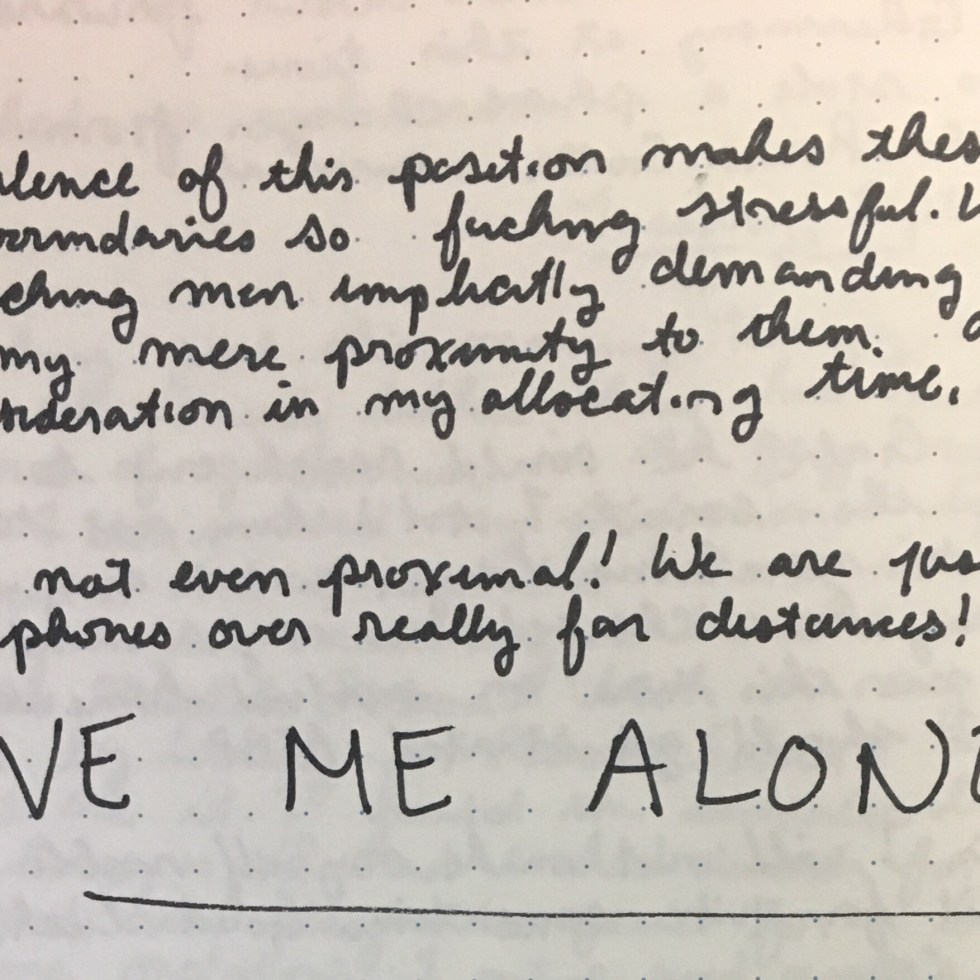 lence of this position makes thes
oundaries so fucking stressful.
ching men implicitly demanding
my mere proximity to them.
sideration in my allocating time.
not even proximal! We are jus
phones over really far distances!
VE ME ALONE